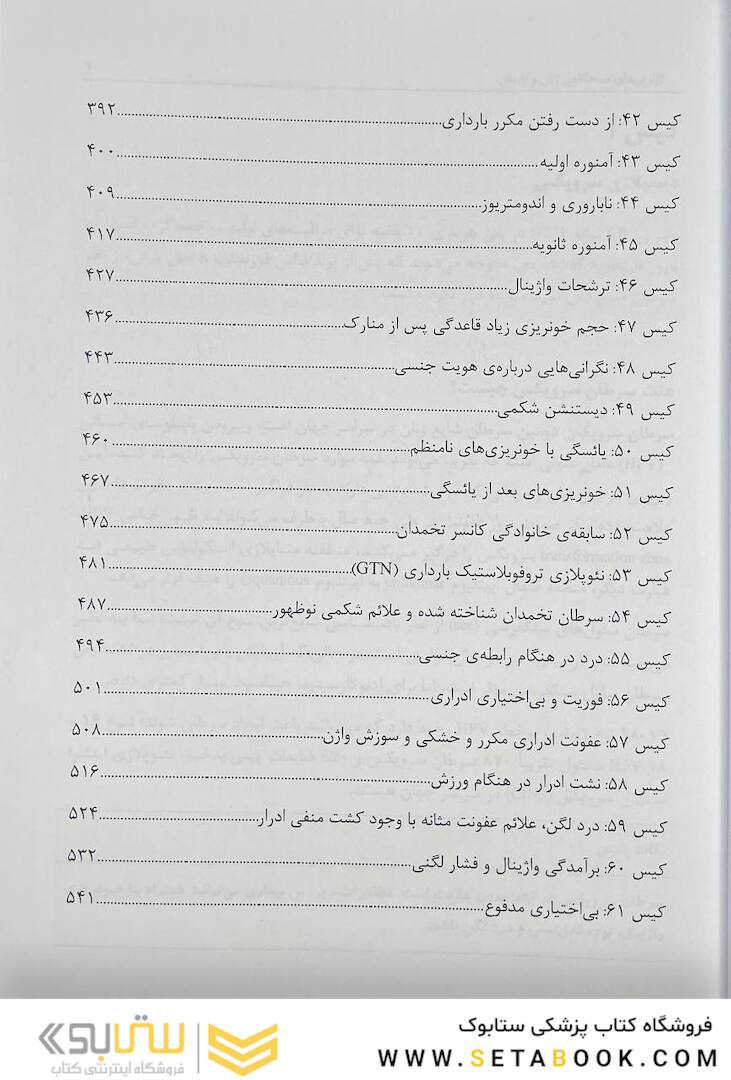 کیس ۴۲: از دست رفتن مکرر بارداری..........۳۹۲
کیس ۴۳: آمنوره اولیه..........۴۰۰
کیس ۴۴: ناباروری و اندومتریوز..........۴۰۹
کیس ۴۵: آمنوره ثانویه..........۴۱۷
کیس ۴۶: ترشحات واژینال..........۴۲۷
کیس ۴۷: حجم خونریزی زیاد قاعدگی پس از منارک..........۴۳۶
کیس ۴۸: نگرانی‌هایی درباره‌ی هویت جنسی..........۴۴۳
کیس ۴۹: دیستنشن شکمی..........۴۵۳
کیس ۵۰: یائسگی با خونریزی‌های نامنظم..........۴۶۰
کیس ۵۱: خونریزی‌های بعد از یائسگی..........۴۶۷
کیس ۵۲: سابقه‌ی خانوادگی کانسر تخمدان..........۴۷۵
کیس ۵۳: نئوپلازی تروفوبلاستیک بارداری (GTN)..........۴۸۱
کیس ۵۴: سرطان تخمدان شناخته شده و علائم شکمی نوظهور..........۴۸۷
کیس ۵۵: درد در هنگام رابطه‌ی جنسی..........۴۹۴
کیس ۵۶: فوریت و بی‌اختیاری ادراری..........۵۰۱
کیس ۵۷: عفونت ادراری مکرر و خشکی و سوزش واژن..........۵۰۸
کیس ۵۸: نشت ادرار در هنگام ورزش..........۵۱۶
کیس ۵۹: درد لگن، علائم عفونت مثانه با وجود کشت منفی ادرار..........۵۲۴
کیس ۶۰: برآمدگی واژینال و فشار لگنی..........۵۳۲
کیس ۶۱: بی‌اختیاری مدفوع..........۵۴۱
فروشگاه کتاب پزشکی ستابوک
WWW.SETABOOK.COM
ستابوک
فروشگاه اینترنتی کتاب